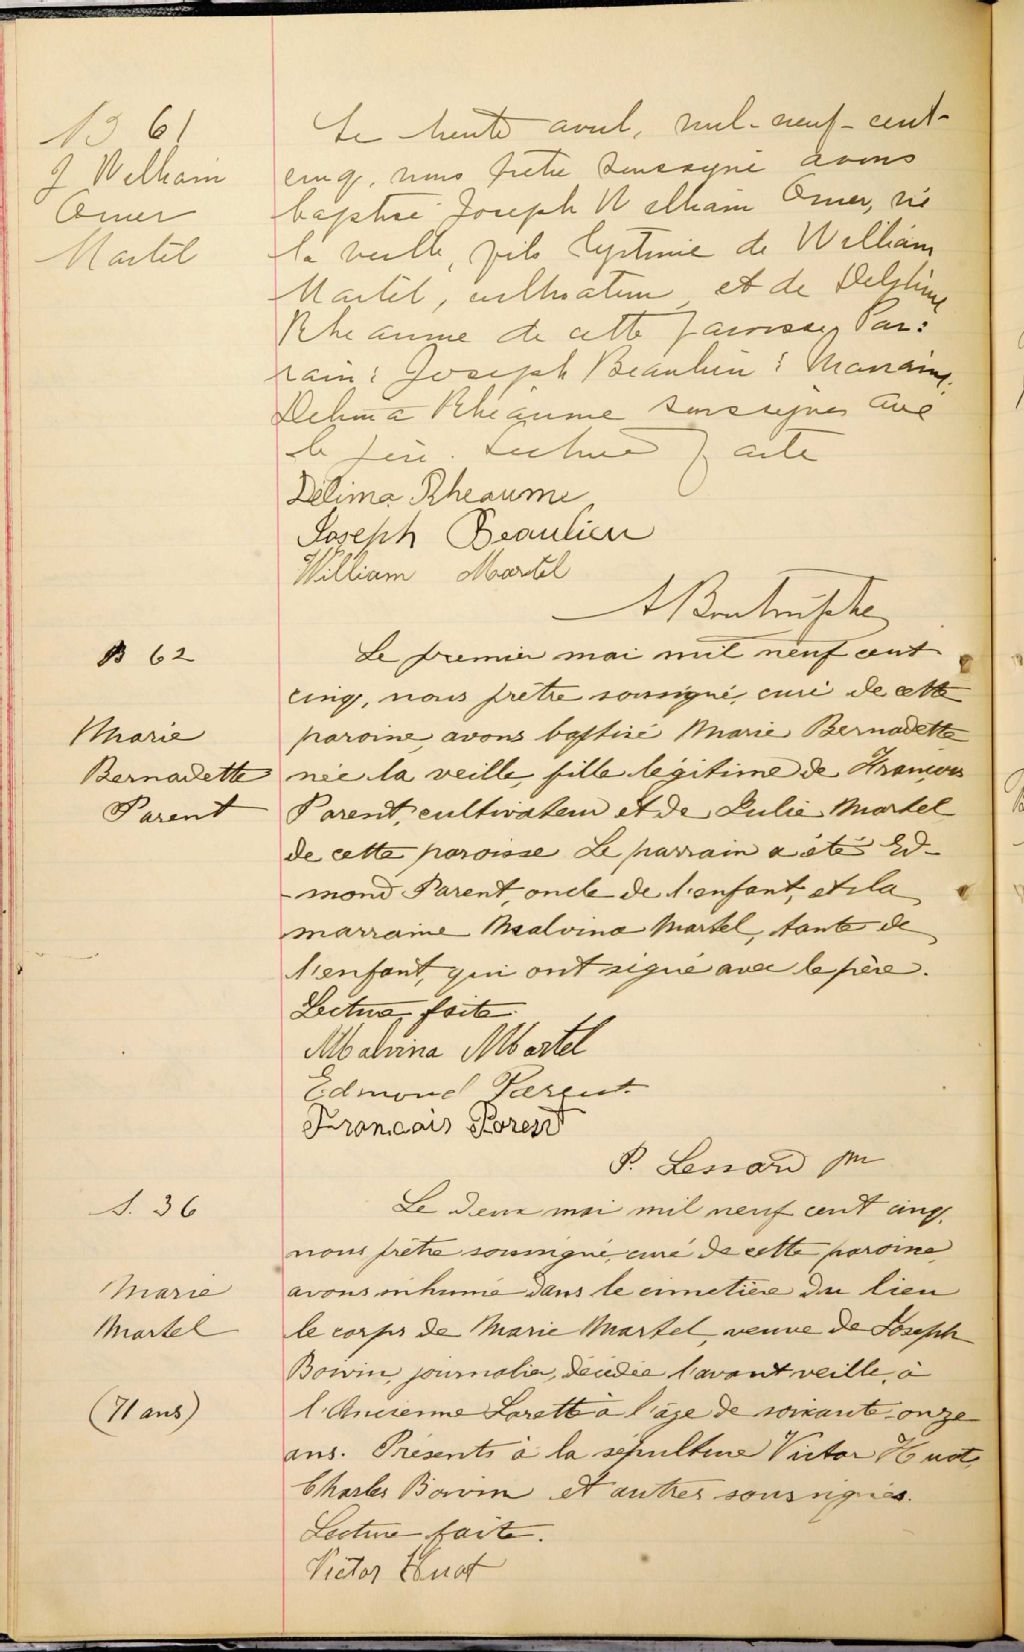 B 61
J William
Omer
Martel
Le trente avril, mil-neuf-cent-
cinq, nous prêtre soussigné avons
baptisé Joseph William Omer, né
la veille, fils légitime de William
Martel, cultivateur, et de Delphine
Rheaume de cette paroisse. Par:
rain: Joseph Beaulieu: Marraine:
Delima Rhéaume soussignés avec
le père. Lecture faite
Délima Rheaume
Joseph Beaulieu
William Martel
B 62
Marie
Bernadette
Parent
Le premier mai mil neuf cent
cinq, nous prêtre soussigné, curé de cette
paroisse, avons baptisé Marie Bernadette
née la veille, fille légitime de François
Parent, cultivateur et de Julie Martel
de cette paroisse Le parrain a été Ed-
-mond Parent, oncle de l'enfant, et la
marraine Malvina Martel, tante de
l'enfant, qui ont signé avec le père.
Lecture faite.
Malvina Martel
Edmond Parent
Francais Parent
P. Lessard ptre
S. 36
Marie
Martel
(71 ans)
Le deux mai mil neuf cent cinq,
nous prêtre soussigné, curé de cette paroisse,
avons inhumé dans le cimetière du lieu
le corps de Marie Martel, veuve de Joseph
Boivin, journalier, décédée l'avant veille, à
l'Ancienne Lorette à l'âge de soixante-onze
ans. Présents à la sépulture Victor Huot,
Charles Boivin et autres soussignés.
Lecture faite.
Victor Huot